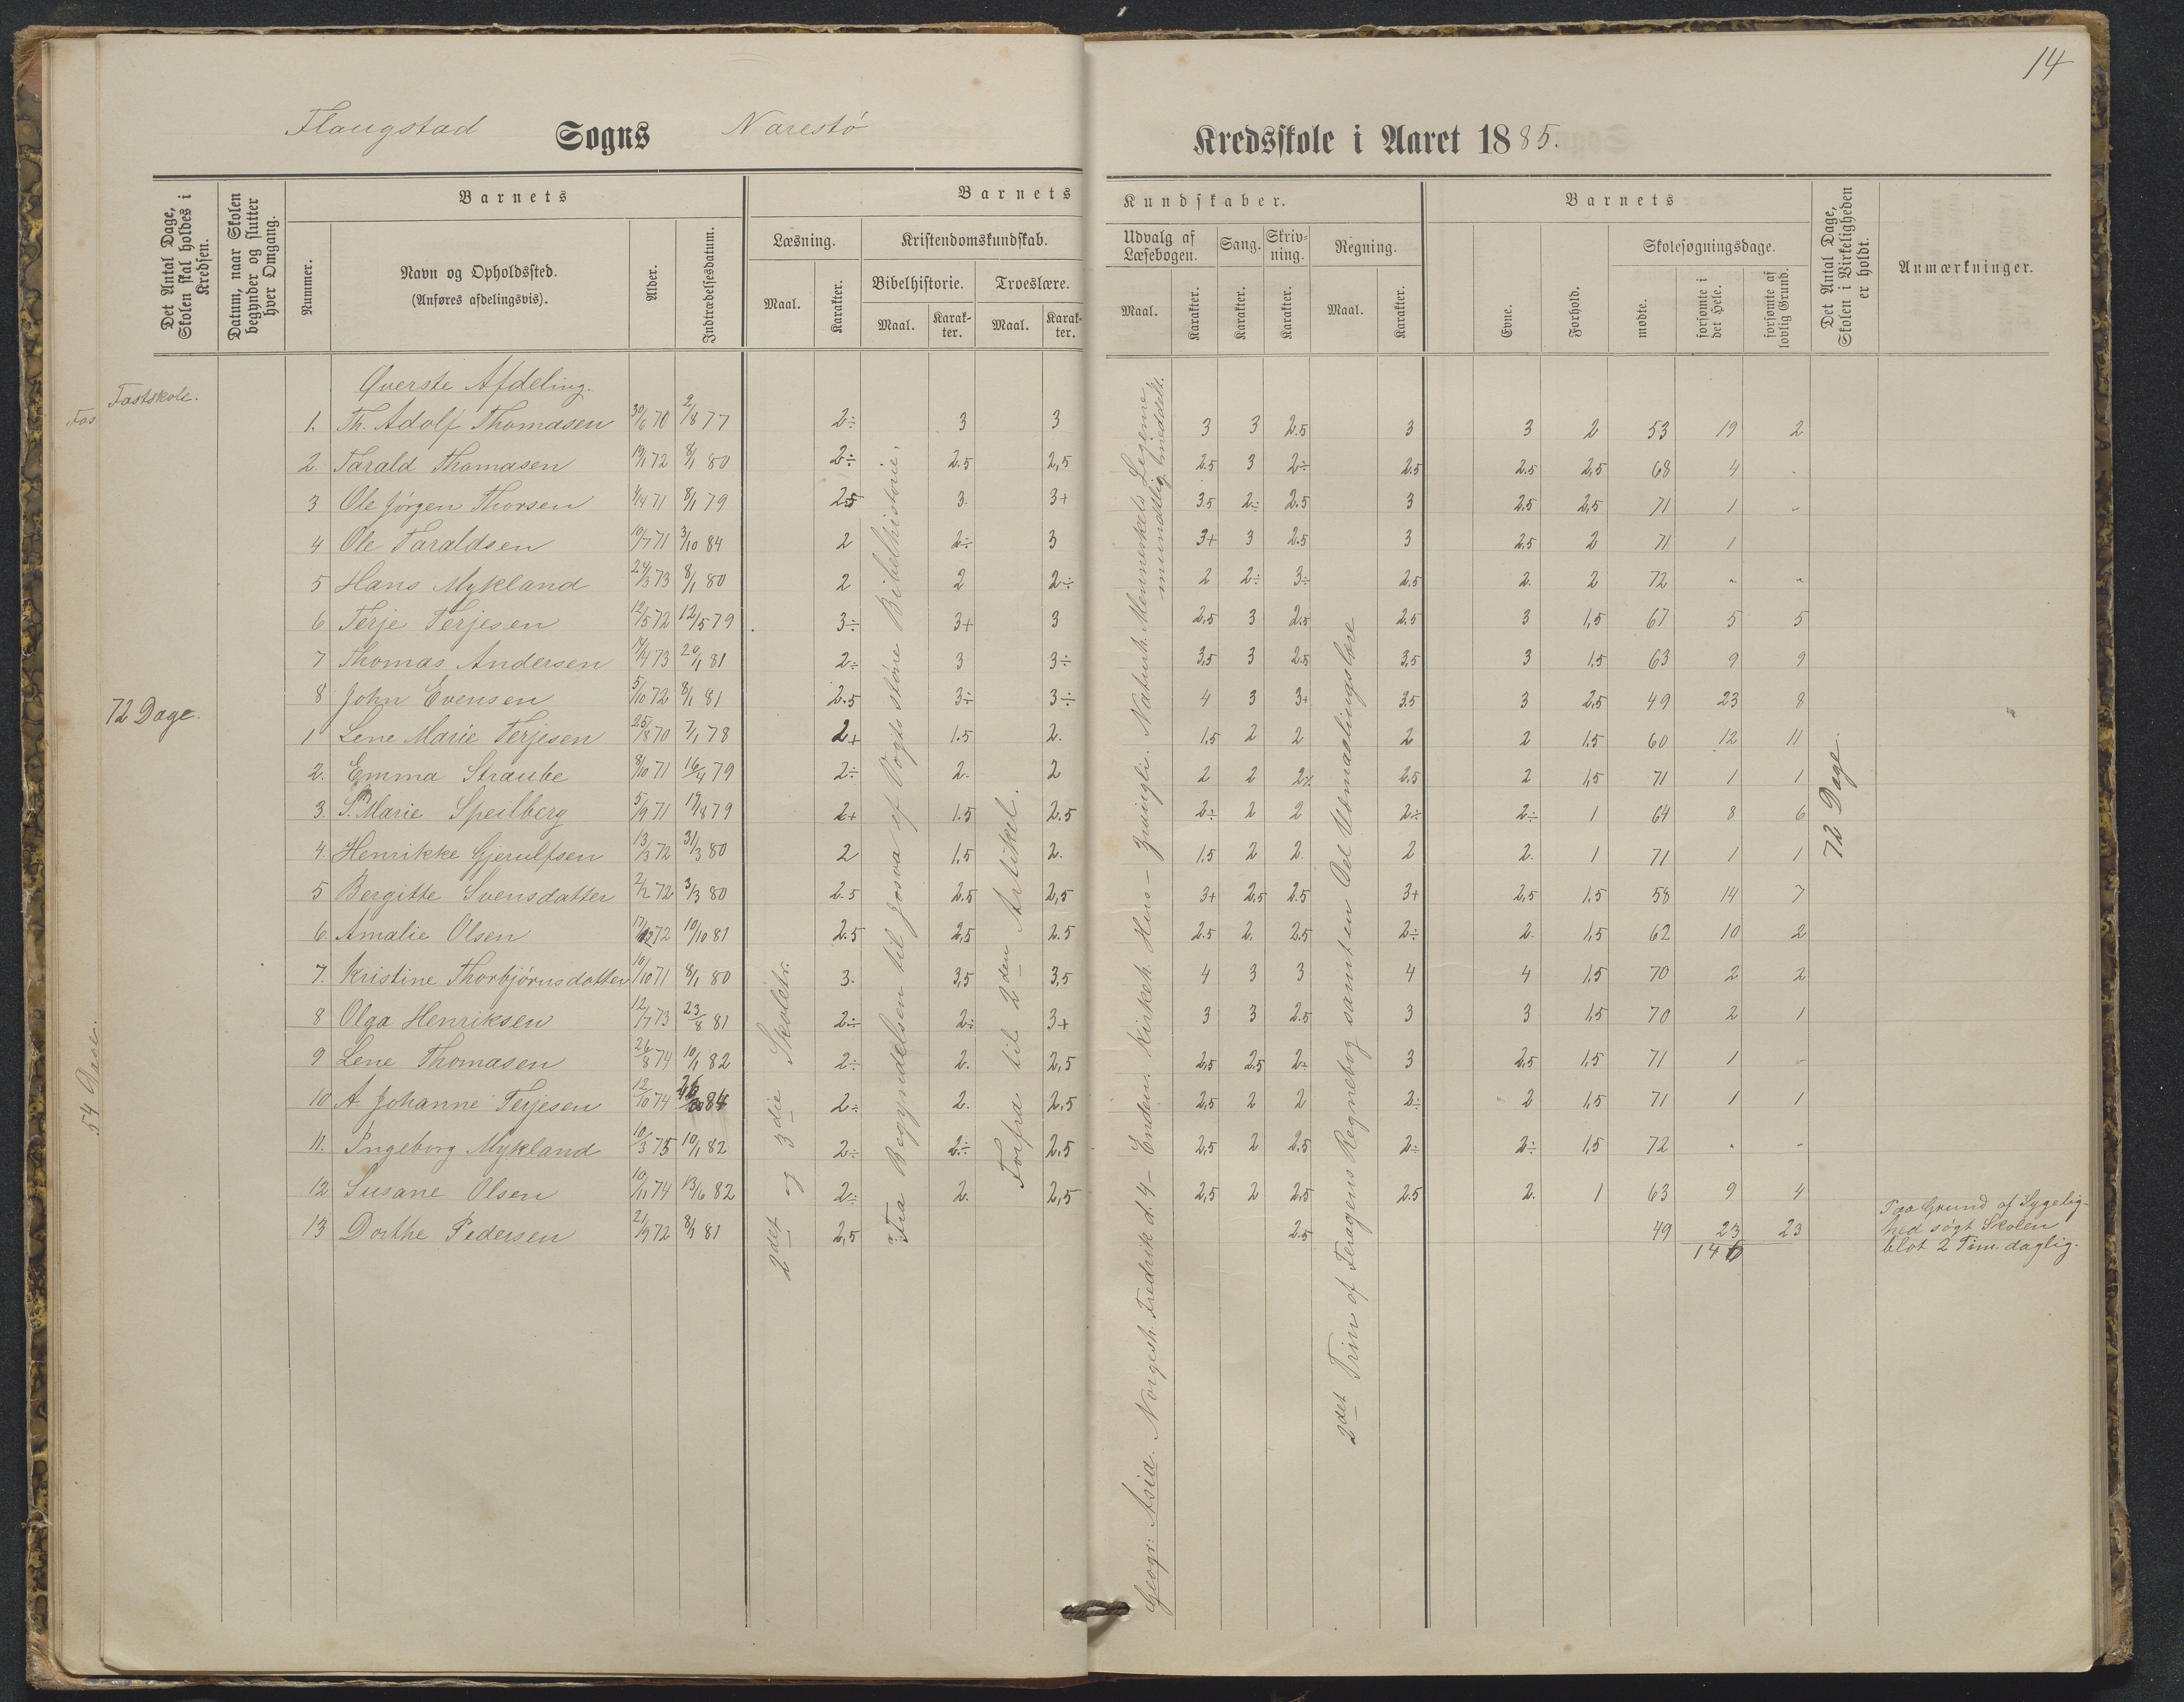 14
Flaugstad Sogns Narestø Kredsskole i Aaret 1885.
Det Antal Dage, Skolen skal holdes i Kredsen.
Datum, naar Skolen begynder og slutter hver Omgang.
Barnets
Nummer.
Navn og Opholdssted.
(Anføres afdelingsvis).
Alder.
Indtrædelsesdatum.
Barnets Kundskaber.
Læsning.
Maal. Karakter.
Kristendomskundskab.
Bibelhistorie. Troeslære.
Maal. Karakter. Maal. Karakter.
Udvalg af Læsebogen. Sang. Skrivning. Regning.
Maal. Karakter. Karakter. Karakter. Maal. Karakter.
Barnets
Evne. Forhold.
Skolesøgningsdage.
mødte. forsømte i det Hele. forsømte af lovlig Grund.
Det Antal Dage, Skolen i Virkeligheden er holdt.
Anmærkninger.
Fastskole.
Øverste Afdeling.
1. Th. Adolf Thomasen 30/6 70 2/8 77 2÷ 3 3 3 3 2.5 3 3 2 53 19 2
2. Tarald Thomasen 19/1 72 8/1 80 2÷ 2.5 2,5 2.5 3 2÷ 2.5 2.5 2,5 68 4 -
3 Ole Jørgen Thorsen 4/4 71 8/1 79 2.5 3. 3+ 3.5 2÷ 2.5 3 2.5 2,5 71 1 -
4 Ole Taraldsen 10/7 71 3/10 84 2 2÷ 3 3+ 3 2.5 3 2,5 2 71 1
5 Hans Mykland 24/3 73 8/1 80 2 2 2÷ 2 2÷ 3÷ 2.5 2. 2 72 - -
6 Terje Terjesen 12/5 72 12/5 79 3÷ 3+ 3 2,5 3 2.5 2.5 3 1,5 67 5 5
7 Thomas Andersen 14/4 73 20/1 81 2÷ 3 3÷ 3,5 3 2.5 3,5 3 1.5 63 9 9
8 John Evensen 5/10 72 8/1 81 2.5 3÷ 3÷ 4 3 3+ 3.5 3 2,5 49 23 8
72 Dage.
1 Lene Marie Terjesen 25/8 70 7/1 78 2+ 1.5 2. 1.5 2 2 2 2 1.5 60 12 11
2. Emma Straube 8/10 71 16/4 79 2÷ 2. 2 2 2 2÷ 2.5 2 1,5 71 1 1
3. S. Marie Speilberg 5/9 71 19/8 79 2+ 1.5 2.5 2÷ 2 2 2÷ 2÷ 1 64 8 6
4. Henrikke Gjerulfsen 13/3 72 31/3 80 2 1,5 2. 1.5 2 2. 2 2. 1 71 1 1
5 Bergitte Svensdatter 2/2 72 3/3 80 2.5 2.5 2,5 3+ 2,5 2.5 3+ 2,5 1.5 58 14 7
6 Amalie Olsen 17/12 72 10/10 81 2.5 2,5 2.5 2.5 2. 2.5 2÷ 2. 1,5 62 10 2
7. Kristine Thorbjørnsdatter 10/10 71 8/1 80 3. 3,5 3,5 4 3 3 4 4 1.5 70 2 2
8 Olga Henriksen 12/7 73 23/8 81 2÷ 2÷ 3+ 3 3 2.5 3 3 1.5 70 2 1
9 Lene Thomasen 26/8 74 10/1 82 2÷ 2. 2,5 2,5 2.5 2÷ 3 2,5 1,5 71 1 -
10 A. Johanne Terjesen 12/10 74 84 2÷ 2. 2.5 2,5 2 2 2÷ 2 1,5 71 1 1
11. Ingeborg Mykland 10/3 75 10/1 82 2÷ 2÷ 2.5 2,5 2 2.5 2÷ 2÷ 1,5 72 - -
12 Susane Olsen 10/11 74 13/6 82 2÷ 2. 2,5 2,5 2 2.5 2.5 2. 1 63 9 4
13 Dorthe Pedersen 21/9 72 8/1 81 2,5 2.5 49 23 23
146
Paa Grund af Sygelig-
hed søgt Skolen
blot 2 Tim. daglig.
72 Dage.
2det og 3die Skoletr.
Fra Begyndelsen til Josva af Vogts større Bibelhistorie.
Forfra til 2den Artikel.
Geogr: Asia. Norgesh. Fredrik d. 4 - Enden. Kirkeh. Hus - Zwingli. Naturh. Menneskets Legeme
mundtlig meddelt.
2det Trin af Feragens Regnebog samt en Del Udmaalingslære
54 Dage.
Fas